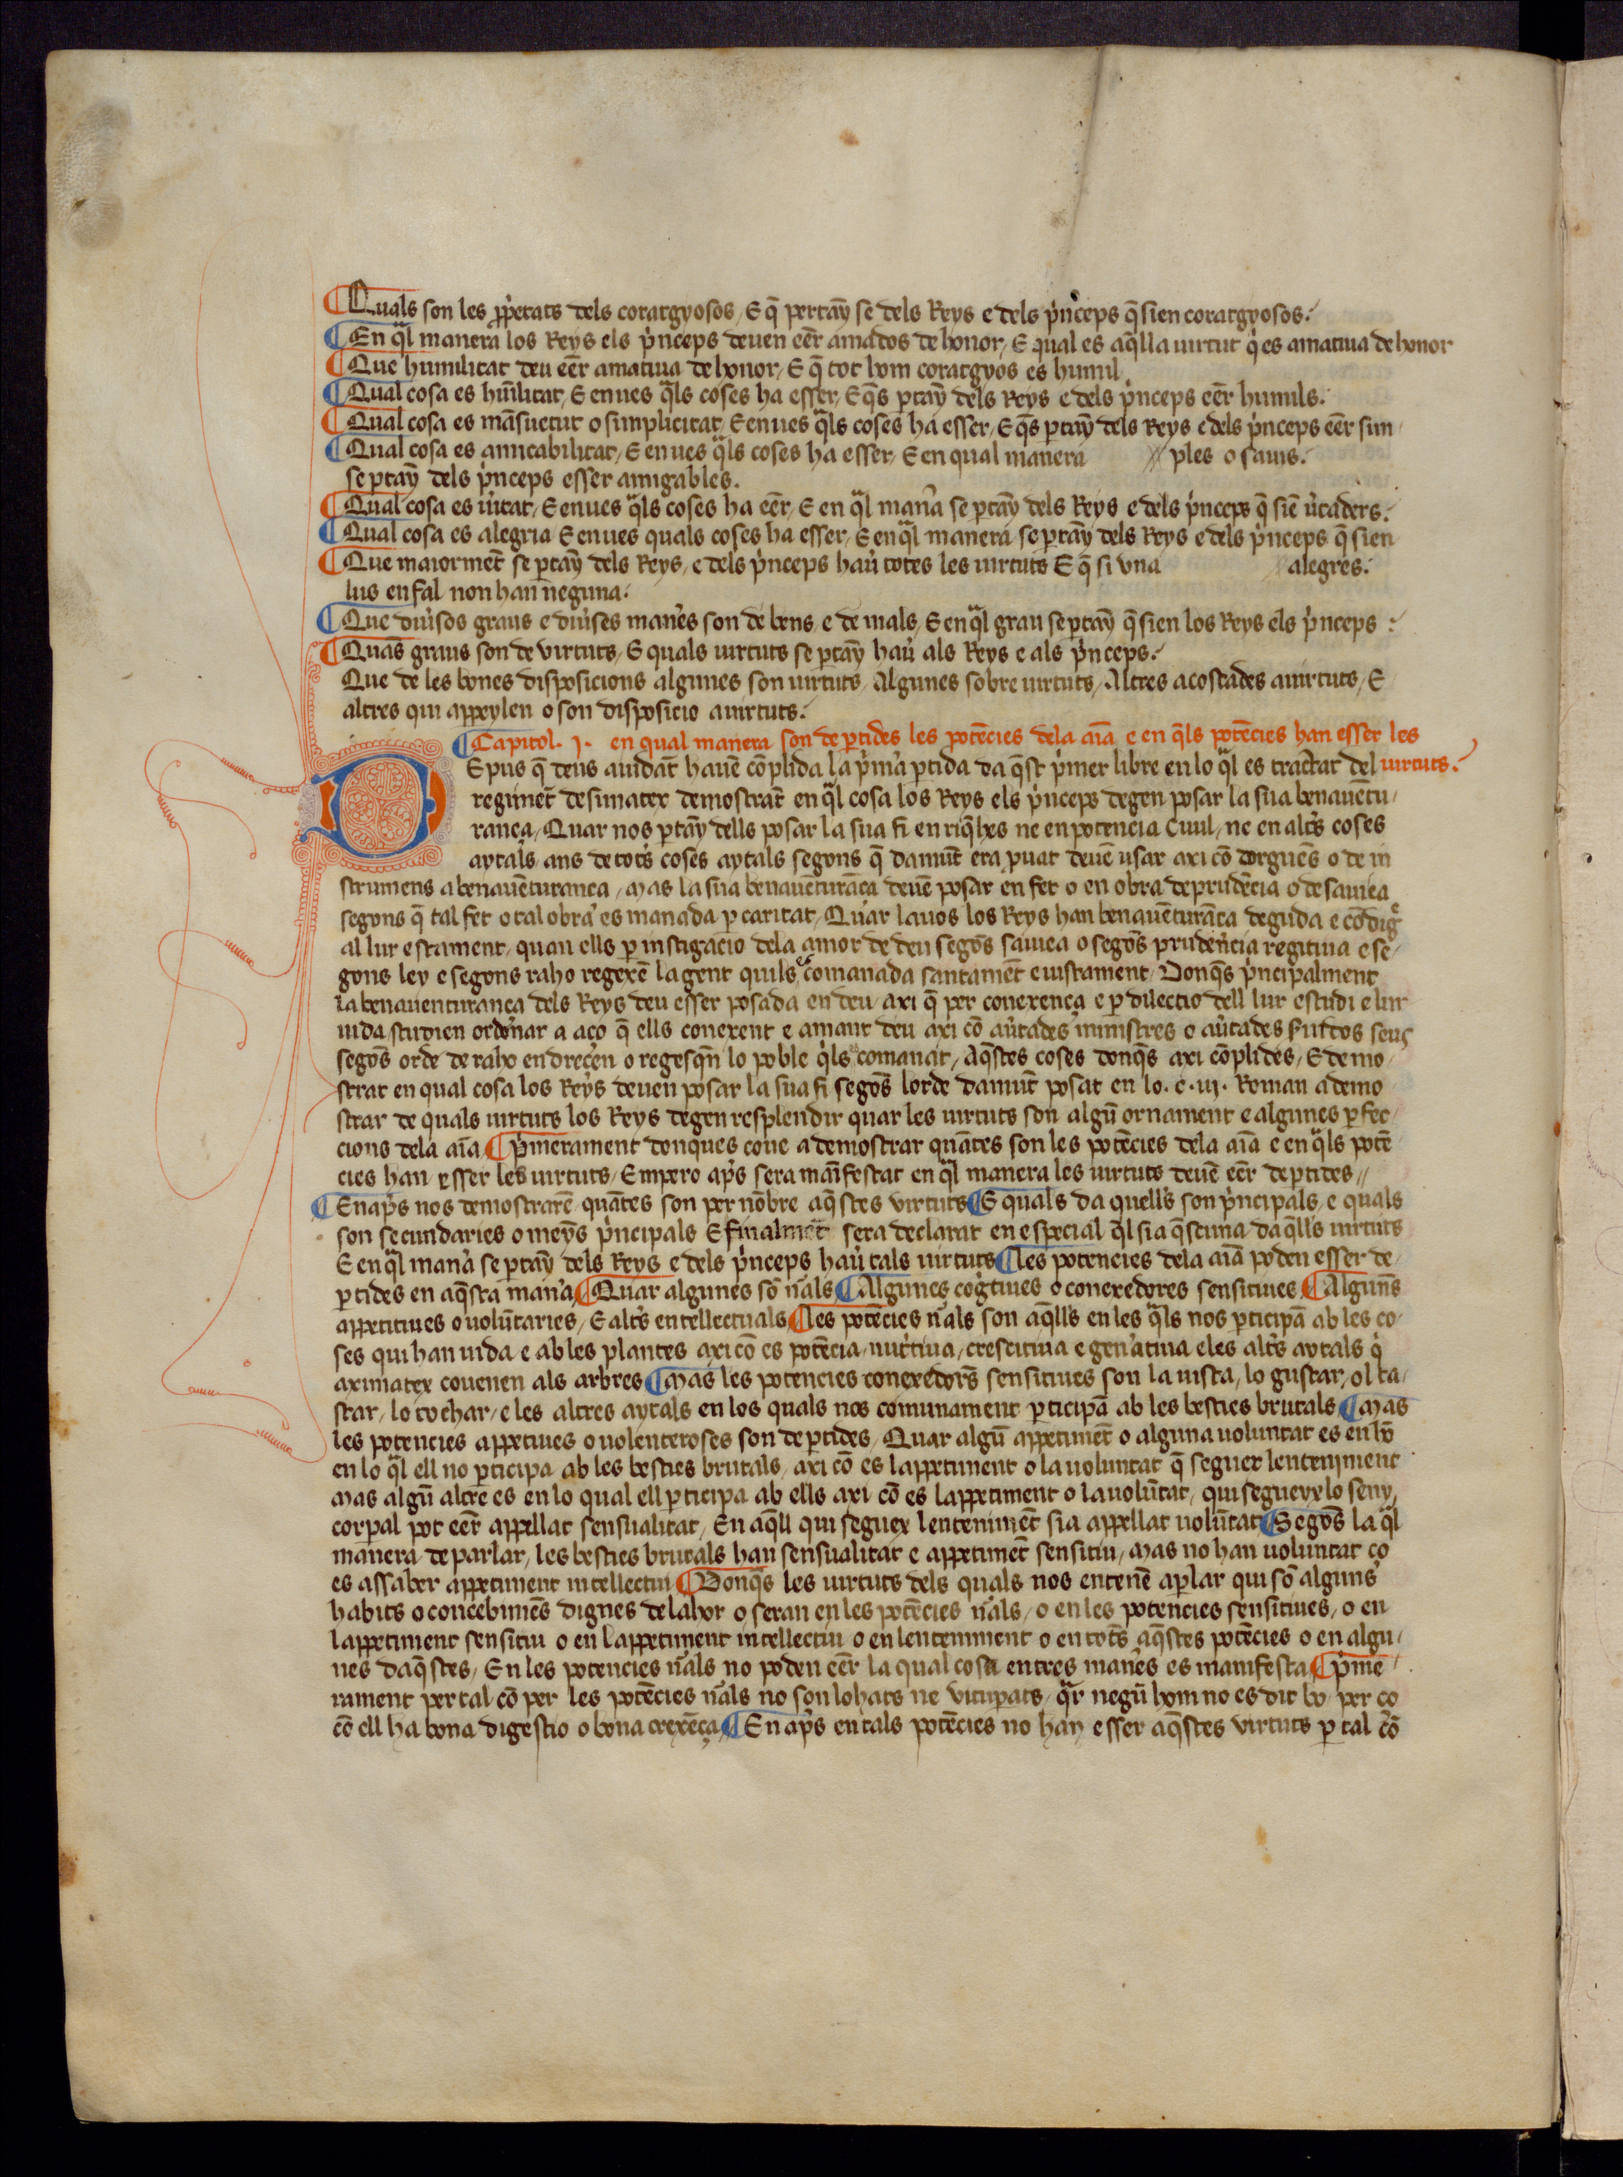 ¶Quals son les ꝓpietats dels coratgyosos / E q̄ pertāy se dels Reys e dels pͥnceps q̄ sien coratgyosos.
¶En qͣl manera los Reys els pͥnceps deuen eēr amados de honor / E qual es aq̄lla uirtut qͥ es amatiua de honor
¶Que humilitat deu eēr amatiua de honor / E q̄ tot hom coratgyos es humil
¶Qual cosa es hūilitat / E enues qͣls coses ha esser / E q̄s ꝑtāy dels Reys e dels pͥnceps eēr humils.
¶Qual cosa es māsuetut o simplicitat / E enues qͣls coses ha esser / E q̄s ꝑtāy dels Reys e dels pͥnceps eēr sim
¶Qual cosa es amicabilitat / E enues qͣls coses ha esser / E en qual manera // ples o suaus.
se ꝑtāy dels pͥnceps esser amigables.
¶Qual cosa es ũitat / E enues qͣls coses ha eēr / E en qͣl man̄a se ꝑtāy dels Reys e dels pͥnceps q̄ siē ũtaders.
¶Qual cosa es alegria E enues quals coses ha esser / E en qͣl manera se ꝑtāy dels Reys e dels pͥnceps q̄ sien
¶Que maiormēt se ꝑtāy dels Reys / e dels pͥnceps hau̓ totes les uirtuts E q̄ si vna // alegres.
lus en fal non han neguna.
¶Que diu̓sos graus e diu̓ses man̓es son de bens / e de mals / E en qͣl grau se ꝑtāy q̄ sien los Reys els pͥnceps :
¶Quās graus son de virtuts / E quals uirtuts se ꝑtāy hau̓ als Reys e als pͥnceps.
Que de les bones disposicions algunes son uirtuts / Algunes sobre uirtuts / Altres acostades a uirtuts / E
altres qui appeylen o son disposicio a uirtuts.
¶Capitol. j. en qual manera son depꝑtides les potēcies dela aīa e en q̄ls potēcies han esser les
DEpus q̄ deus aiudāt hauē cōplida la pͥm̓a ꝑtida da q̄st pͥmer libre en lo qͣl es tractat del uirtuts.
regimēt de simatex demostrāt en qͣl cosa los Reys els pͥnceps degen posar la sua benauētu /
rança / Quar nos ꝑtāy dells posar la sua fi en riq̄hes ne en potencia Ciuil / ne en alt̓s coses
aytals ans de tot̓s coses aytals segons q̄ damūt era ꝓuat deuē usar axi cō dorguēs o de in
strumens a benauēturança / Mas la sua benauēturāça deuē posar en fet o en obra de prudēcia o de sauiea
segons q̄ tal fet o tal obra es manada ꝑ caritat / Quar lauos los Reys han benauēturāça deguda e cōdigͤ
al lur estament / quan ells ꝑ instigacio dela amor de deu segōs sauiea o segōs prudencia regitiua e se /
gons ley e segons raho regexē la gent quils es comanada santamēt e iustament / Donq̄s pͥncipalment
la benauenturança dels Reys deu esser posada en deu / axi q̄ per conexença e ꝑ dilectio dell lur estudi e lur
uida studien ordenar a aço q̄ ells conexent e amant deu axi cō au̓tades ministres o au̓tades suftos seus
segōs orde de raho endreçen o regesq̄n lo poble qͥls comanat / Aq̄stes coses donq̄s axi cōplides / E demo /
strat en qual cosa los Reys deuen posar la sua fi segōs lorde damūt posat en lo. c. iij. Roman a demo
strar de quals uirtuts los Reys degen resplendir quar les uirtuts son algū ornament e algunes ꝑfec
cions dela aīa ¶pͥmerament donques coue a demostrar quātes son les potēcies dela aīa e en qͣls potē
cies han esser les uirtuts / Empero ap̄s sera māifestat en qͣl manera les uirtuts deuē eēr deꝑtides //
¶En ap̄s nos demostrarē quātes son per nōbre aq̄stes virtuts ¶E quals da quell̓s son pͥncipals / e quals
son secundaries o meȳs pͥncipals E finalmēt sera declarat en especial qͣl sia q̄scuna daq̄ll̓s uirtuts
E en qͣl man̓a se ꝑtāy dels Reys e dels pͥnceps hau̓ tals uirtuts ¶les potencies dela aīa poden esser de
ꝑtides en aq̄sta man̓a ¶Quar algunes sō n̄als ¶Algunes cogͥtiues o conexedores sensitiues ¶Algun̄s
appetitiues o uolūtaries / E alt̓s entellectuals ¶les potēcies n̄als son aq̄ll̓s en les qͣls nos ꝑticipā ab les co
ses qui han uida e ab les plantes axi cō es potēcia / nutͥtiua / crescitiua e gen̓atiua e les alt̓s aytals qͥ
aximatex couenen als arbres ¶Mas les potencies conexedor̓s sensitiues son la uista / lo gustar / ol ta /
star / lo tochar / e les altres aytals en los quals nos comunament ꝑticipā ab les besties brutals ¶Mas
les potencies appetiues o uolenteroses son deꝑtides / Quar algū appetimēt o alguna uoluntat es en lō
en lo qͣl ell no ꝑticipa ab les besties brutals / axi cō es lappetiment o la uoluntat q̄ seguex lenteniment
Mas algū altre es en lo qual ell ꝑticipa ab ells axi cō es lappetiment o la uolūtat / qui seguex lo seny
corpal pot eēr appellat sensualitat / En aq̄ll qui seguex lentenimēt sia appellat uolūtat ¶Segōs la qͣl
manera de parlar / les besties brutals han sensualitat e appetimēt sensitiu / Mas no han uoluntat ço
es assaber appetiment intellectiu ¶Donq̄s les uirtuts dels quals nos entenē a ꝑlar qui sō alguns
habits o concebimēs dignes de lahor o seran en les potēcies n̄als / o en les potencies sensitiues / o en
lappetiment sensitiu o en lappetiment intellectiu o en lenteniment o en tot̓s aq̄stes potēcies o en algu /
nes daq̄stes / En les potencies n̄als no poden eēr la qual cosa en tres man̓es es manifesta ¶pͥme
rament per tal cō per les potēcies n̄als no son lohats ne vituperats / qͣr negū hom no es dit bo / per ço
cō ell ha bona digestio o bona crexēça ¶En ap̄s en tals potēcies no han esser aq̄stes virtuts ꝑ tal cō